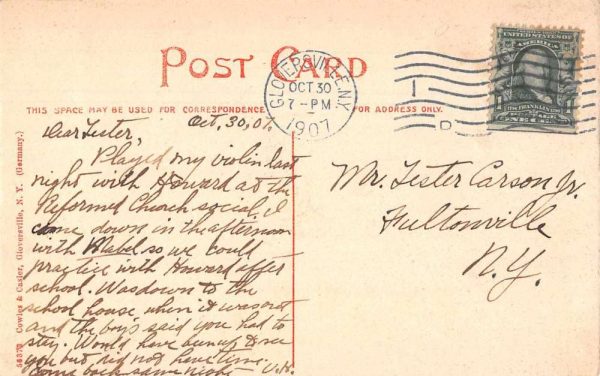 POST CARD
GLOVERSVILLE, N.Y.
OCT 30
7-PM
1907
1
D
UNITED STATES OF
AMERICA
FRANKLIN
POSTAGE
1 ONE CENT 1
THIS SPACE MAY BE USED FOR CORRESPONDENCE
FOR ADDRESS ONLY.
Oct, 30, 07.
Dear Lester,
Played my violin last
night with Howard at the
Reformed Church social. I
came down in the afternoon
with Mabel so we could
practice with Howard after
school. Was down to the
school house when it was out
and the boys said you had to
stay. Would have been up to see
you but did not have time.
Came back same night
Mr. Lester Carson Jr.
Fultonville
N.Y.
Cowles & Casler, Gloversville, N. Y. (Germany.)